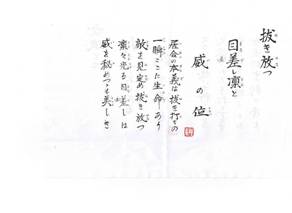 抜き放つ
目差し凛と
威の位
居合の本義は抜き打ちの
一瞬にこそ生命あり
敵を見定め抜き放つ
凛々光る目差しは
威を秘めつつも美しき